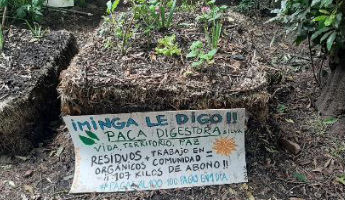 ¡MINGA LE DIGO!!
PACA DIGESTORA SILVA
VIDA, TERRITORIO, PAZ
RESIDUOS + TRABAJO EN =
ORGÁNICOS COMUNIDAD
¡¡ 107 KILOS DE ABONO!!